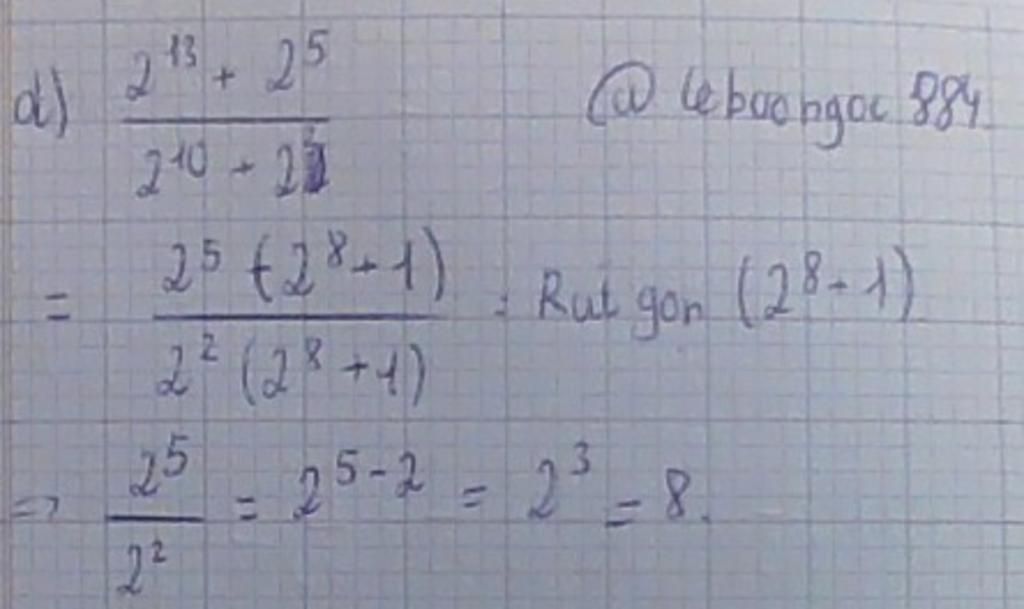 d) \frac{2^{13} + 2^5}{2^{10} + 2^2} @ lebaongoc 884
= \frac{2^5 (2^8 + 1)}{2^2 (2^8 + 1)} : Rut gon (2^8 + 1)
=> \frac{2^5}{2^2} = 2^{5-2} = 2^3 = 8.